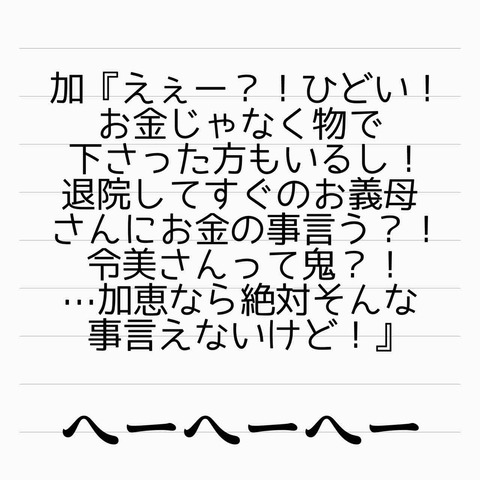 加『えぇー？！ひどい！
お金じゃなく物で
下さった方もいるし！
退院してすぐのお義母
さんにお金の事言う？！
令美さんって鬼？！
…加恵なら絶対そんな
事言えないけど！』
へーへーへー